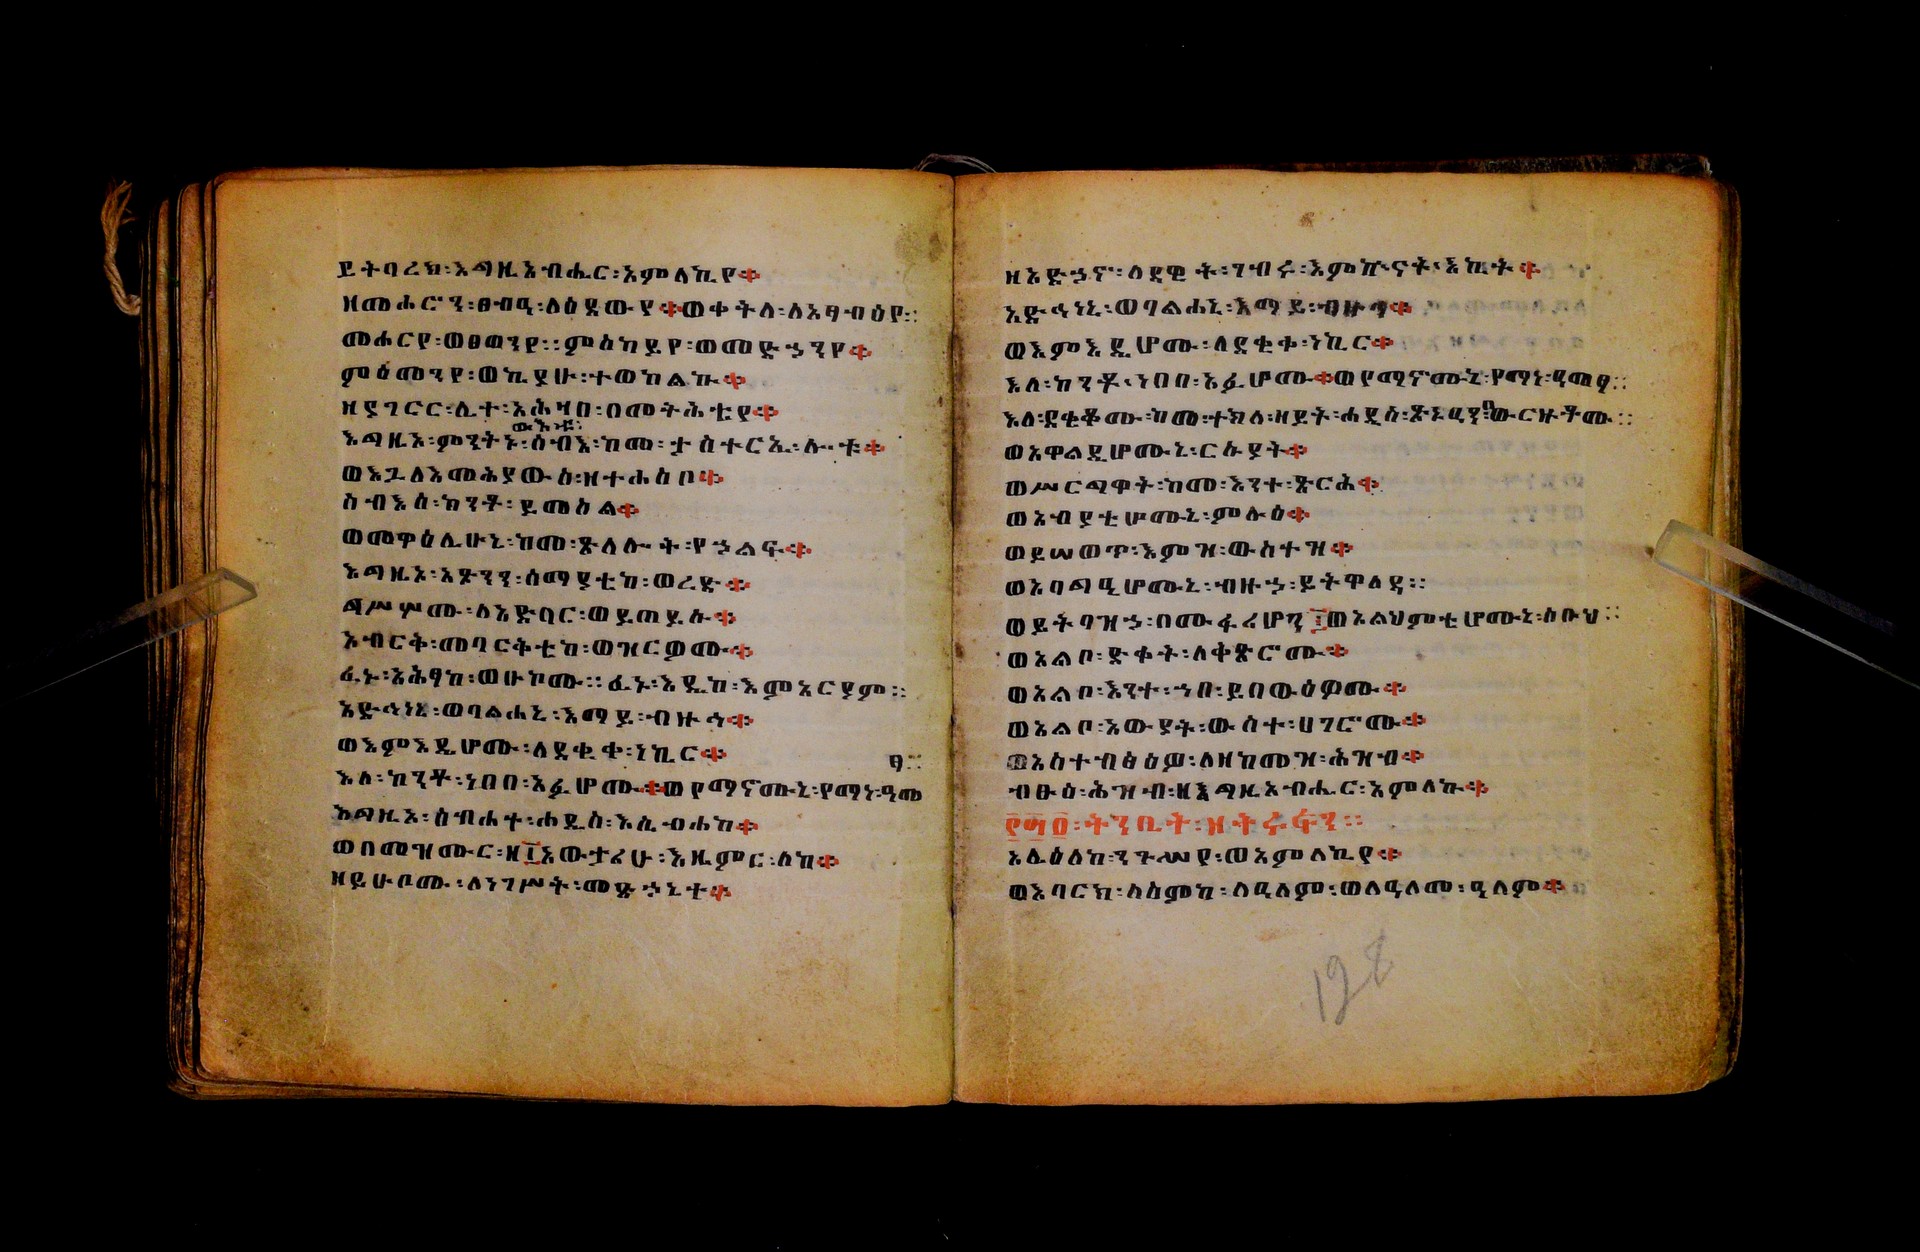 ይትባረክ፡እግዚአብሔር፡አምላኪየ፨
ዘመሐሮን፡ፀብዒ፡ለዕደውየ፨ወቀትለ፡ለአፃብዕየ።
መሐርየ፡ወፀወንየ።ምስካይየ፡ወመድኃንየ፨
ምዕመንየ፡ወኪያሁ፡ተወከልኩ፨
ዘያገርር፡ሊተ፡አሕዛበ፡በመትሕቴየ፨
ውእቱ፡
እግዚኦ፡ምንትኑ፡ሰብእ፡ከመ፡ታስተርኢ፡ሎቱ፨
ወእጓለእመሕያውስ፡ዘተሐስቦ፨
ሰብእሰ፡ከንቶ፡ይመስል፨
ወመዋዕሊሁኒ፡ከመ፡ጽላሎት፡የኃልፍ፨
እግዚኦ፡አጽንን፡ሰማያቲከ፡ወረድ፨
ግሥሦሙ፡ለአድባር፡ወይጠይሱ፨
አብርቅ፡መባርቅቲከ፡ወዝርዎሙ፨
ፈኑ፡አሕፃከ፡ወሁኮሙ።ፈኑ፡እዴከ፡እምአርያም።
አድኅነኒ፡ወባልሐኒ፡እማይ፡ብዙኅ፨
ወእምእደ፡ሆሙ፡ለደቂቀ፡ነኪር፨
ፃ።
እለ፡ከንቶ፡ነበበ፡አፉሆሙ፨ወየማኖሙኒ፡የማነ፡ዓመ
እግዚኦ፡ስብሐተ፡ሐዲስ፡እሴብሐከ፨
ወበመዝሙር፡ዘ፲አውታሪሁ፡እዜምር፡ለከ፨
ዘይሁቦሙ፡ለነገሥት፡መድኃኒተ፨
ዘአድኃኖ፡ለዳዊት፡ገብሩ፡እምኵናት፡እኪት፨
አድኅነኒ፡ወባልሐኒ፡እማይ፡ብዙኅ፨
ወእምእደ፡ሆሙ፡ለደቂቀ፡ነኪር፨
እለ፡ከንቶ፡ነበበ፡አፉሆሙ፨ወየማኖሙኒ፡የማነ፡ዓመፃ።
እለ፡ደቂቆሙ፡ከመ፡ተክለ፡ዘይት፡ሐዲስ፡ጽኑዓን፡በውርዙቶሙ።
ወአዋልዲሆሙኒ፡ርሱያት፨
ወሥርግዋት፡ከመ፡እንተ፡ጽርሕ፨
ወአብያቲሆሙኒ፡ምሉዕ፨
ወይሠወጥ፡እምዝ፡ውስተ፡ዝ፨
ወአባግዒሆሙኒ፡ብዙኃ፡ይትዋለዳ።
ወይትባዝኃ፡በሙፋሪሆን፤ወአልህምቲሆሙኒ፡ስቡህ።
ወአልቦ፡ድቀት፡ለቅጽሮሙ፨
ወአልቦ፡እንተ፡ኀበ፡ይበውዕዎሙ፨
ወአልቦ፡አውያት፡ውስተ፡ሀገሮሙ፨
ወአስተብፅዕዎ፡ለዘከመዝ፡ሕዝብ፨
ብፁዕ፡ሕዝብ፡ዘእግዚአብሔር፡አምላኩ፨
አሌዕለከ፡ንጉሠየ፡ወአምላኪየ፨
ወእባርክ፡ለስምከ፡ለዓለም፡ወለዓለመ፡ዓለም፨
128